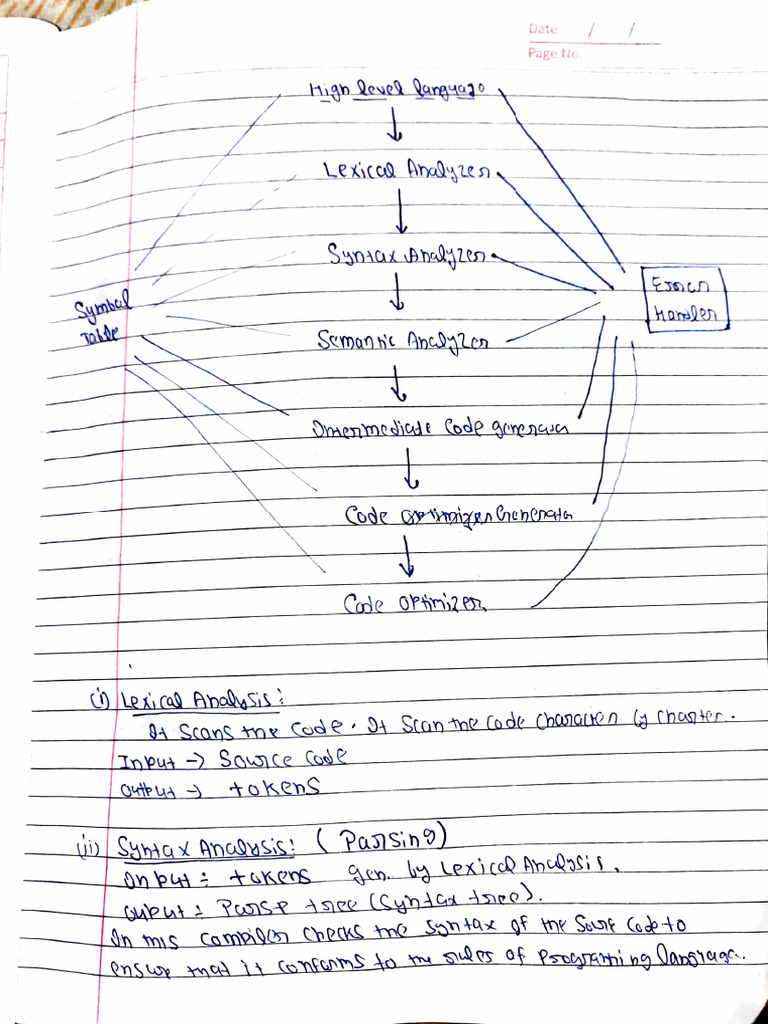 Date / /
Page No.
High level language
Lexical Analyzer
Syntax Analyzer
Symbol
Table
Error
Handler
Semantic Analyzer
Intermediate Code generator
Code optimizer Generator
Code optimizer
(i) Lexical Analysis:
It scans the code. It scan the code character by charter.
Input → Source code
output → tokens
(ii) Syntax Analysis: (Parsing)
Input = tokens gen. by Lexical Analysis.
ouput = Parse tree (Syntax tree).
In this compiler checks the syntax of the Sourc code to
ensure that it conforms to the rules of Programing language.